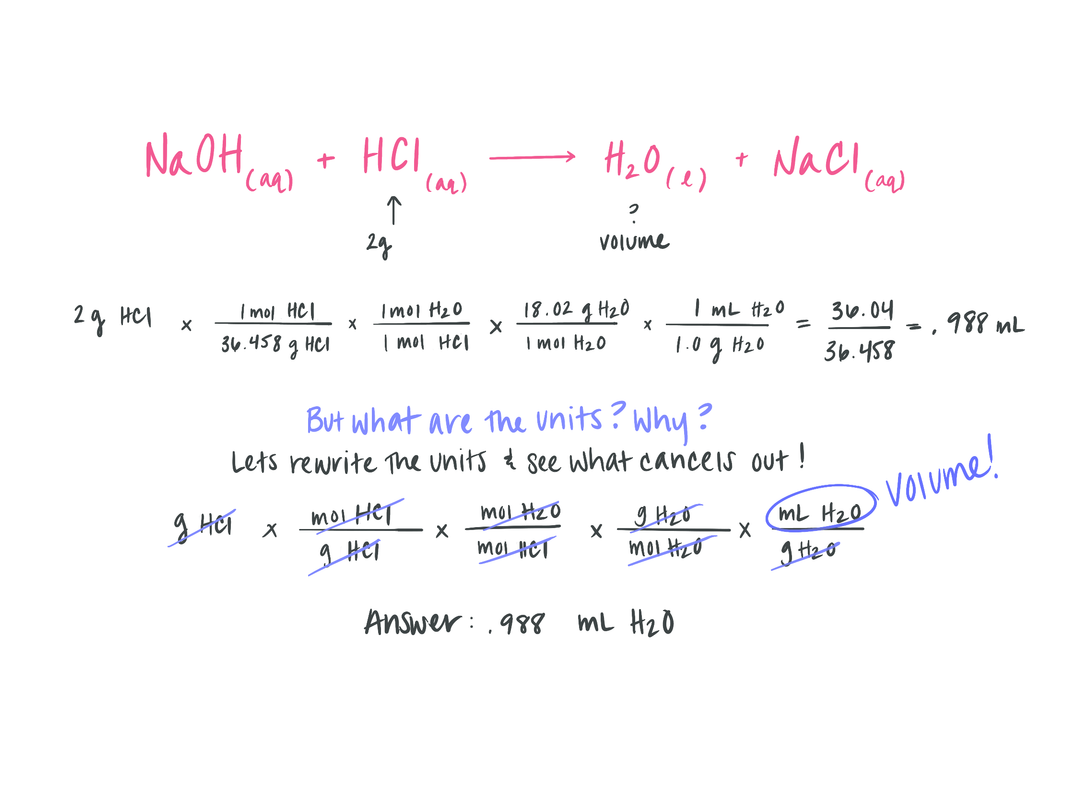 NaOH(aq) + HCl(aq) → H2O(l) + NaCl(aq)
↑ ?
2g volume
2g HCl x 1 mol HCl / 36.458 g HCl x 1 mol H2O / 1 mol HCl x 18.02 g H2O / 1 mol H2O x 1 mL H2O / 1.0 g H2O = 36.04 / 36.458 = .988 mL
But what are the units? Why?
Lets rewrite the units & see what cancels out!
g HCl x mol HCl / g HCl x mol H2O / mol HCl x g H2O / mol H2O x mL H2O / g H2O volume!
Answer: .988 mL H2O